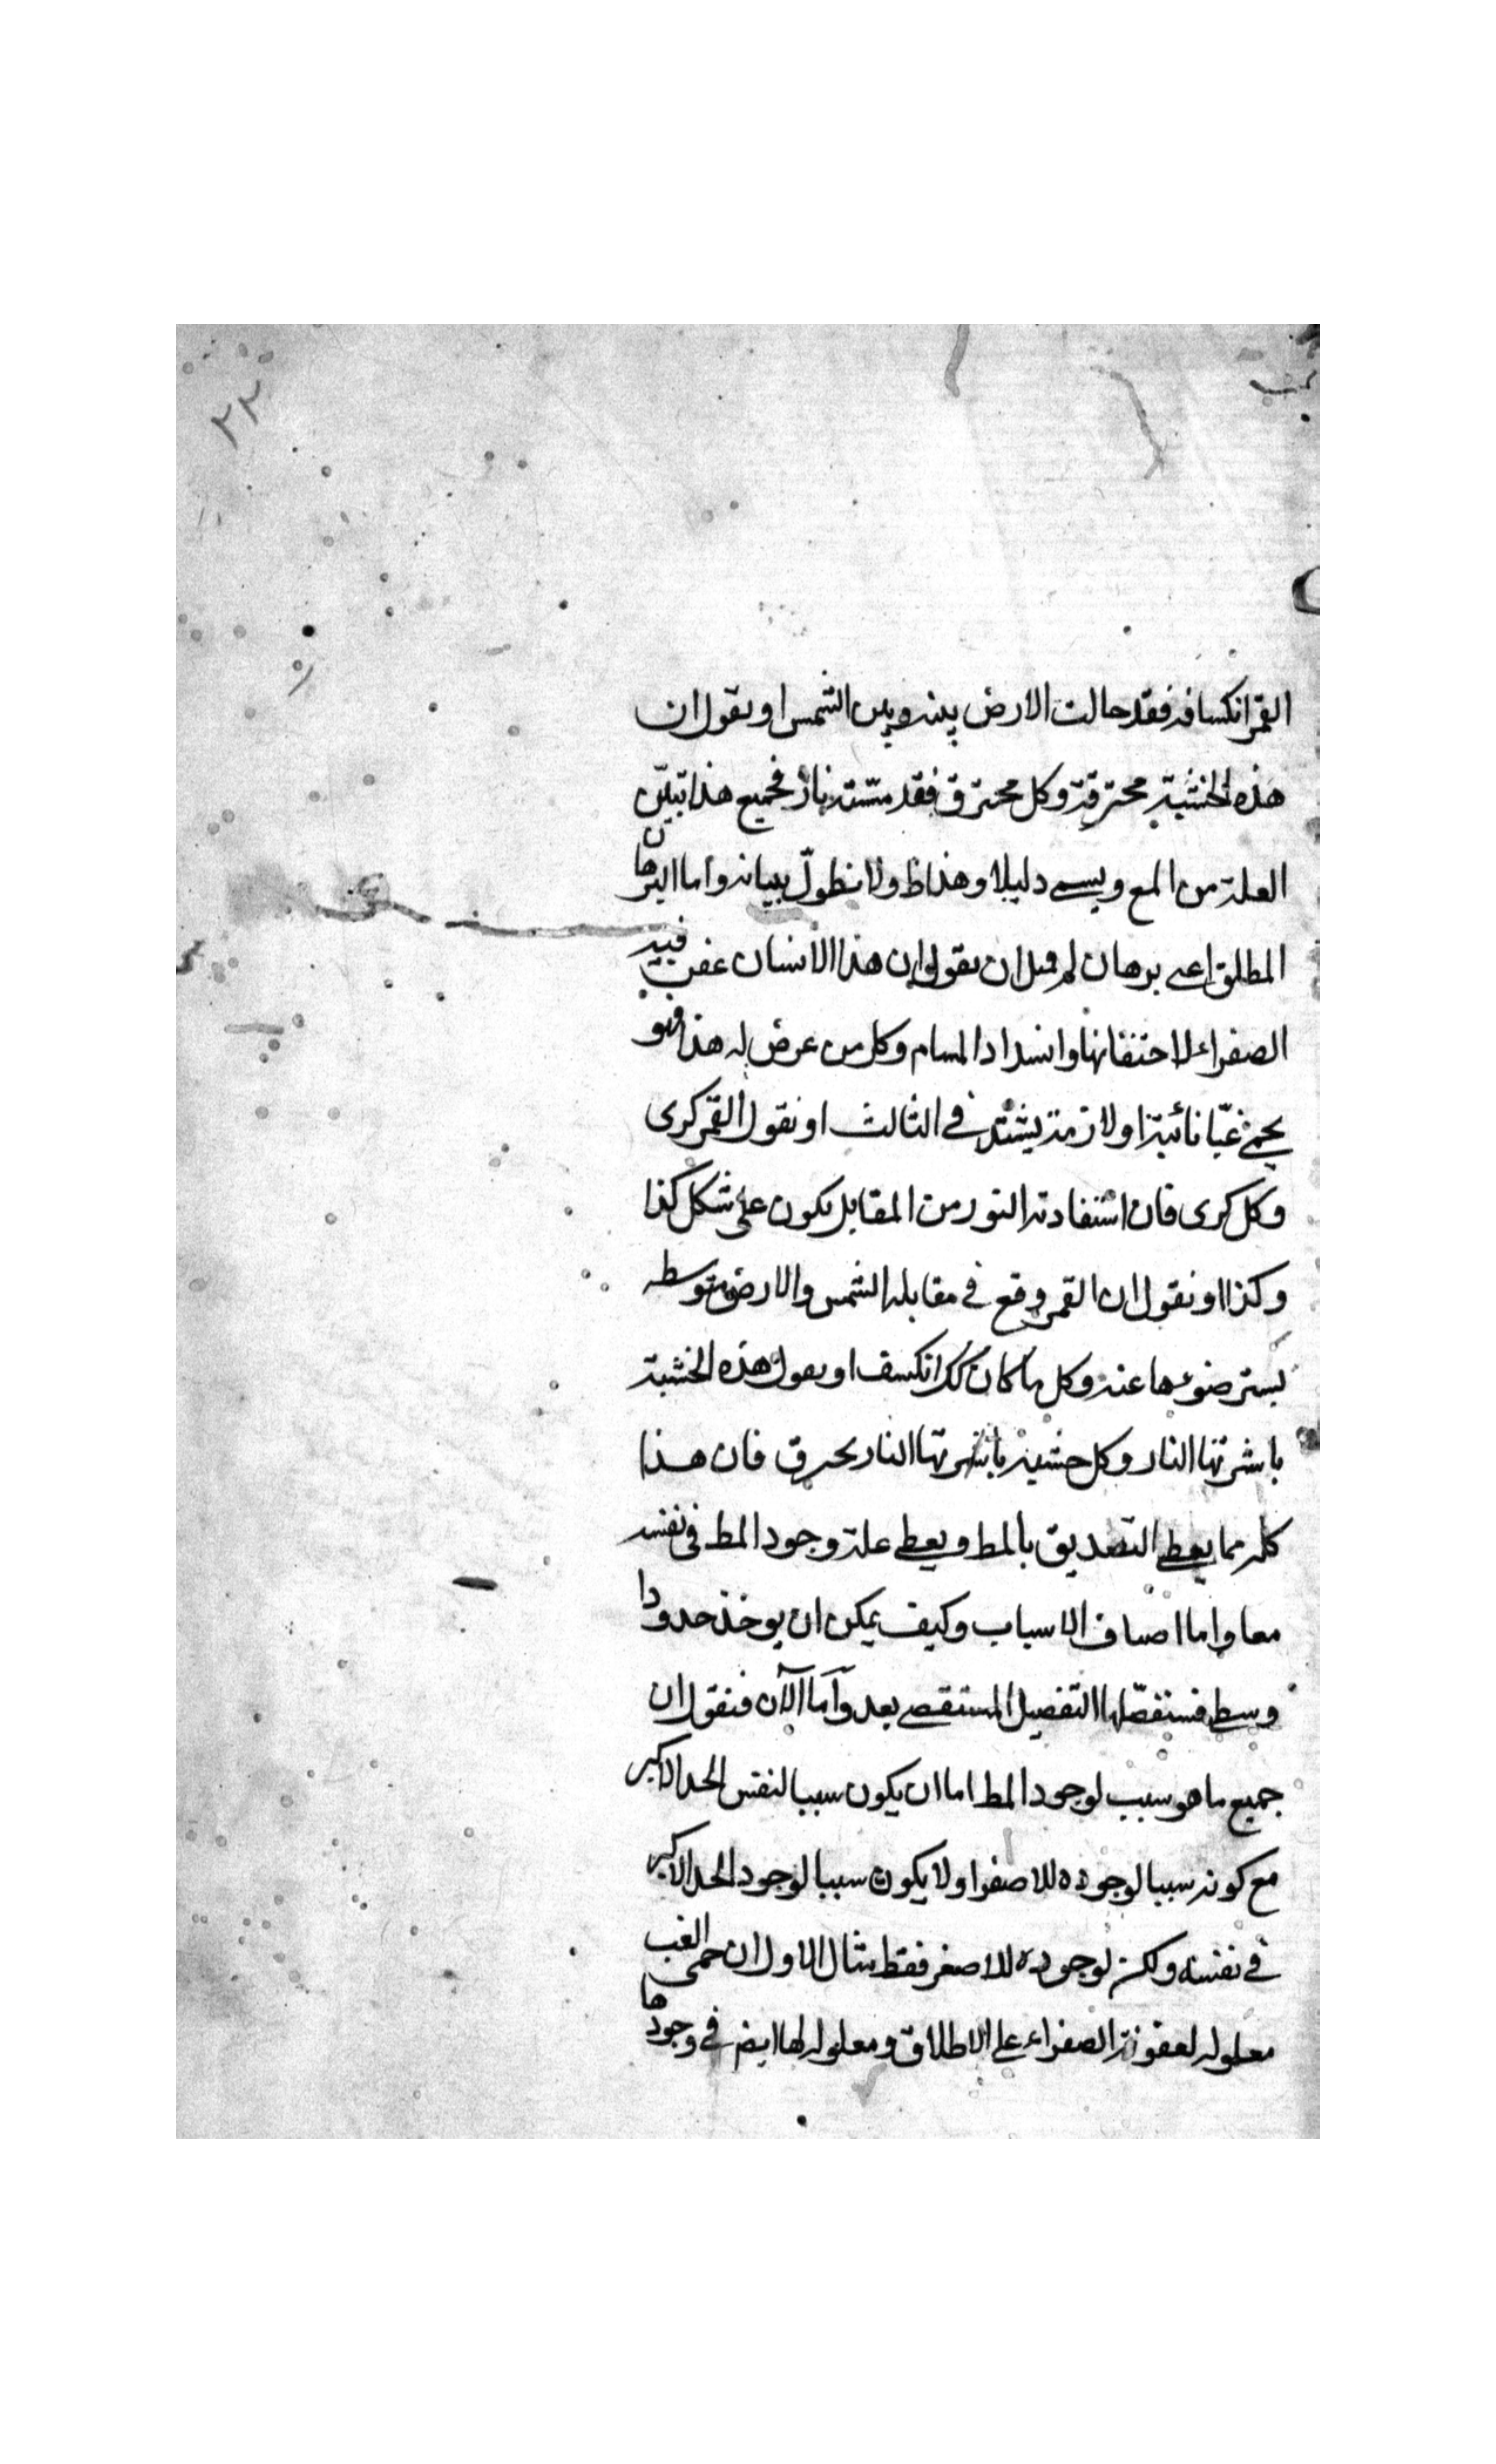 ٢٢
القمر انكسافه فقد حالت الارض بينه وبين الشمس او نقول ان
هذه الخشبة محترقة وكل محترق فقد مسته نار فجميع هذا تبيّن
العلة من المع ويسمى دليلا وهذا ظ ولا نطوّل ببيانه واما البرهان
المطلق اعنى برهان لم فمثل ان نقول ان هذا الانسان عفنت فيه
الصفراء لاحتقانها وانسداد المسام وكل من عرض له هذا فهو
يحمّ غبّا نائبة او لازمة يشتد فى الثالث او نقول القمر كرى
وكل كرى فان استفادته النور من المقابل يكون على شكل كذا
وكذا او نقول ان القمر وقع فى مقابلة الشمس والارض متوسطه
يستر ضوءها عنه وكل ما كان كك انكسف او نقول هذه الخشبة
باشرتها النار وكل خشبة باشرتها النار يحترق فان هذا
كله مما يعطى التصديق بالمط ويعطى علة وجود المط فى نفسه
معا واما اصناف الاسباب وكيف يمكن ان يوخذ حدودا
وسطى فسنفصّلها التفصيل المستقصى بعد وآما الآن فنقول ان
جميع ما هو سبب لوجود المط اما ان يكون سببا لنفس الحد الاكبر
مع كونه سببا لوجوده للاصغر او لا يكون سببا لوجود الحد الاكبر
فى نفسه ولكن لوجوده للاصغر فقط مثال الاول ان حمى الغب
معلوله لعفونة الصفراء على الاطلاق ومعلوله لها ايضا فى وجودها